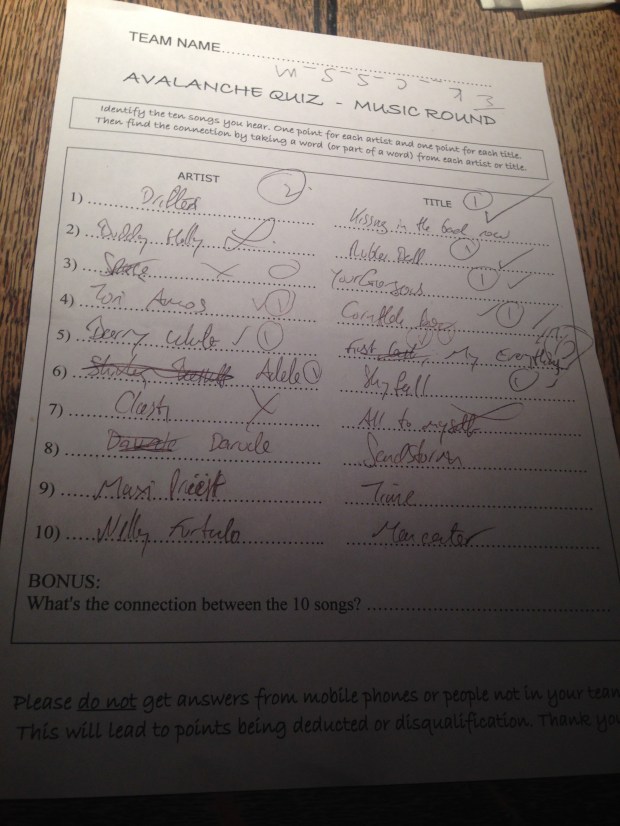 TEAM NAME
M-S-S-C
AVALANCHE QUIZ - MUSIC ROUND
Identify the ten songs you hear. One point for each artist and one point for each title.
Then find the connection by taking a word (or part of a word) from each artist or title.
ARTIST TITLE
1) Drifters 2 Kissing in the back row 1
2) Buddy Holly Rubber Ball 1
3) Your Gorgeous 1
4) Tori Amos 1 Cornflake 1
5) Barry White 1 First Last, My Everything
6) Adele 1 Skyfall 1
7) All to myself
8) Darude Sandstorm
9) Maxi Priest Time
10) Nelly Furtado Maneater
BONUS:
What's the connection between the 10 songs?
Please do not get answers from mobile phones or people not in your team
This will lead to points being deducted or disqualification. Thank you